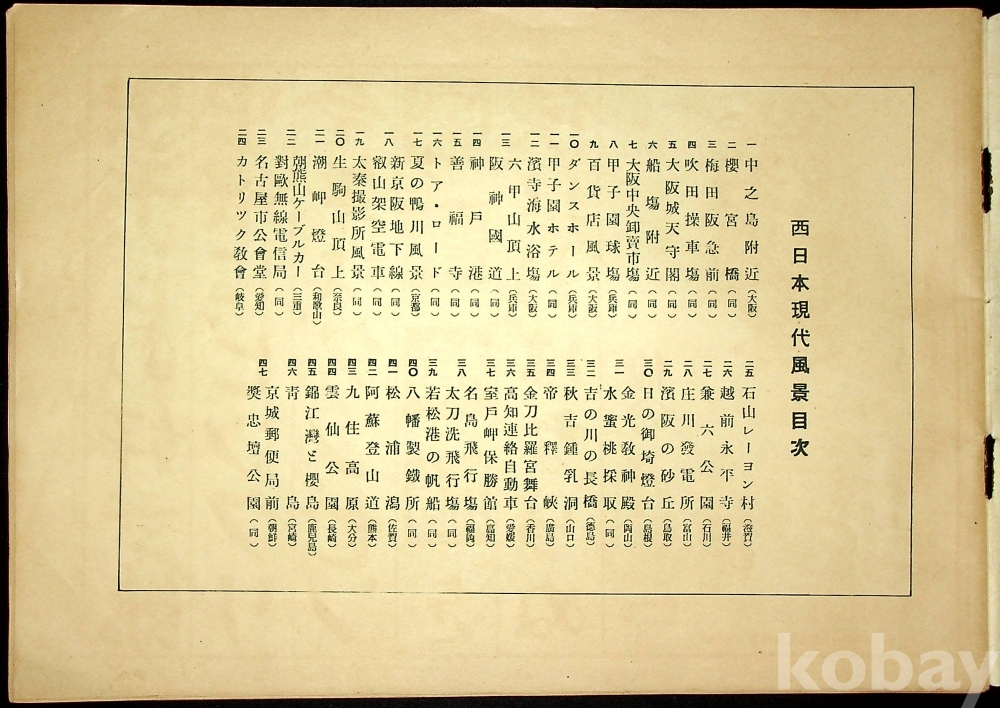 西日本現代風景目次
一 中之島附近 (大阪)
二 櫻宮橋 (同)
三 梅田阪急前 (同)
四 吹田操車場 (同)
五 大阪城天守閣 (同)
六 船場附近 (同)
七 大阪中央卸賣市場 (同)
八 甲子園球場 (兵庫)
九 百貨店風景 (大阪)
一〇 ダンスホール (兵庫)
一一 甲子園ホテル (同)
一二 濱寺海水浴場 (大阪)
一三 六甲山頂上 (兵庫)
阪神國道 (同)
一四 神戸港 (同)
一五 善福寺 (同)
一六 トア・ロード (同)
一七 夏の鴨川風景 (京都)
一八 新京阪地下線 (同)
叡山架空電車 (同)
一九 太秦撮影所風景 (同)
二〇 生駒山頂上 (奈良)
二一 潮岬燈台 (和歌山)
二二 朝熊山ケーブルカー (三重)
對歐無線電信局 (同)
二三 名古屋市公會堂 (愛知)
二四 カトリツク教會 (岐阜)
二五 石山レーヨン村 (滋賀)
二六 越前永平寺 (福井)
二七 兼六公園 (石川)
二八 庄川發電所 (富山)
二九 濱阪の砂丘 (鳥取)
三〇 日の御埼燈台 (島根)
三一 金光教神殿 (岡山)
水蜜桃採取 (同)
三二 吉の川の長橋 (德島)
三三 秋吉鍾乳洞 (山口)
三四 帝釋峽 (廣島)
三五 金刀比羅宮舞台 (香川)
三六 高知連絡自動車 (愛媛)
三七 室戸岬保勝館 (高知)
三八 名島飛行場 (福岡)
太刀洗飛行場 (同)
三九 若松港の帆船 (同)
四〇 八幡製鐵所 (同)
四一 松浦潟 (佐賀)
四二 阿蘇登山道 (熊本)
四三 九住高原 (大分)
四四 雲仙公園 (長崎)
四五 錦江灣と櫻島 (鹿兒島)
四六 靑島 (宮崎)
四七 京城郵便局前 (朝鮮)
奬忠壇公園 (同)
kobay